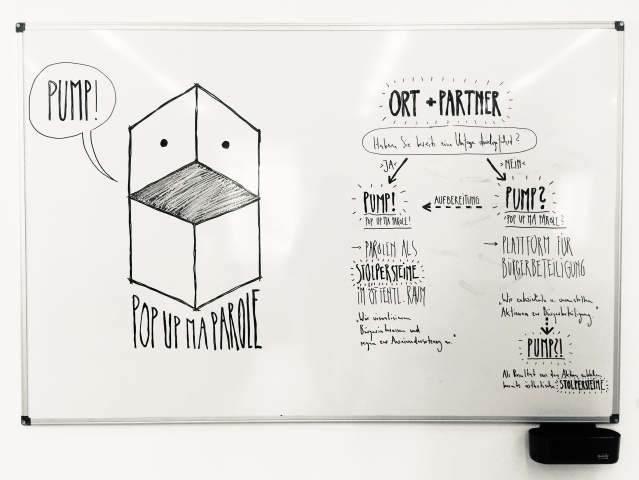 PUMP!
POP UP MA PAROLE
ORT + PARTNER
Haben Sie bereits eine Umfrage durchgeführt?
>JA<
>NEIN<
PUMP!
POP UP MA PAROLE!
AUFBEREITUNG
PUMP?
POP UP MA PAROLE?
→ PAROLEN ALS
STOLPERSTEINE
IM ÖFFENTL. RAUM
"Wir visualisieren
Bürgerinteressen und
regen zur Auseinandersetzung an."
→ PLATTFORM FÜR
BÜRGERBETEILIGUNG
"Wir entwickeln u. veranstalten
Aktionen zur Bürgerbeteiligung."
PUMP?!
Als Resultat aus den Aktionen
STOLPERSTEINE